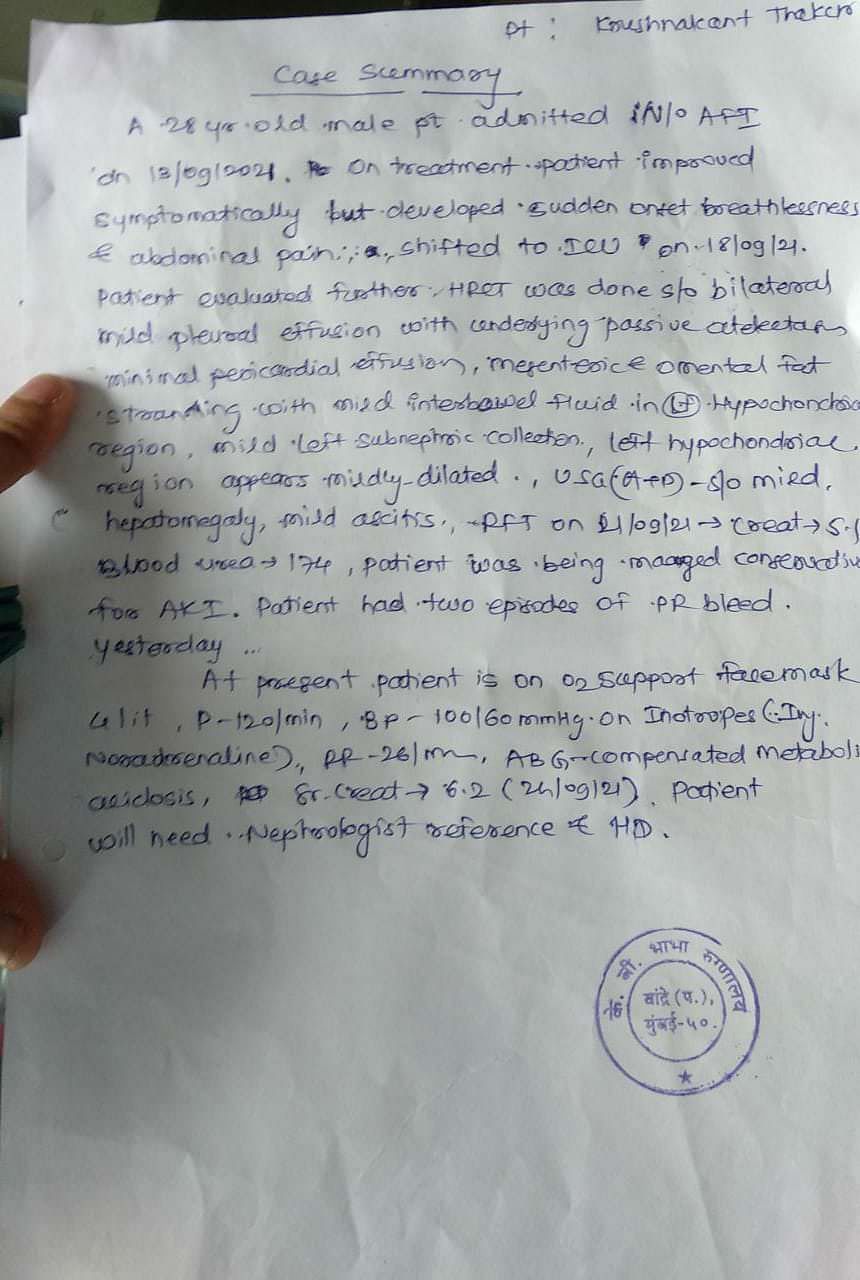 pt : Koushnakant Thaker
Case Summary
A 28 yr old male pt admitted i/v/o AFI
on 13/09/2021. On treatment patient improved
symptomatically but developed sudden onset breathlessness
& abdominal pain, shifted to ICU on 18/09/21.
Patient evaluated further. HRCT was done s/o bilateral
mild pleural effusion with underlying passive atelectasis
minimal pericardial effusion, mesenteric & omental fat
stranding with mild interbowel fluid in (Lt) Hypochondric
region, mild left subnephric collection, left hypochondriac
region appears mildly dilated., USG(A+P) - s/o mild
hepatomegaly, mild ascitis., RFT on 21/09/21 → Creat → 5.
Blood urea → 174, patient was being managed conservative
for AKI. Patient had two episodes of PR bleed.
yesterday ...
At present patient is on O2 support facemask
4 lit, P-120/min, BP - 100/60 mmHg on Inotropes (Inj.
Noradrenaline), RR-26/mn, ABG - compensated metaboli
acidosis, Sr. Creat → 6.2 (24/09/21). Patient
will need Nephrologist reference & HD.
बी. भाभा रुग्णालय
बांद्रे (प.),
मुंबई-५०.